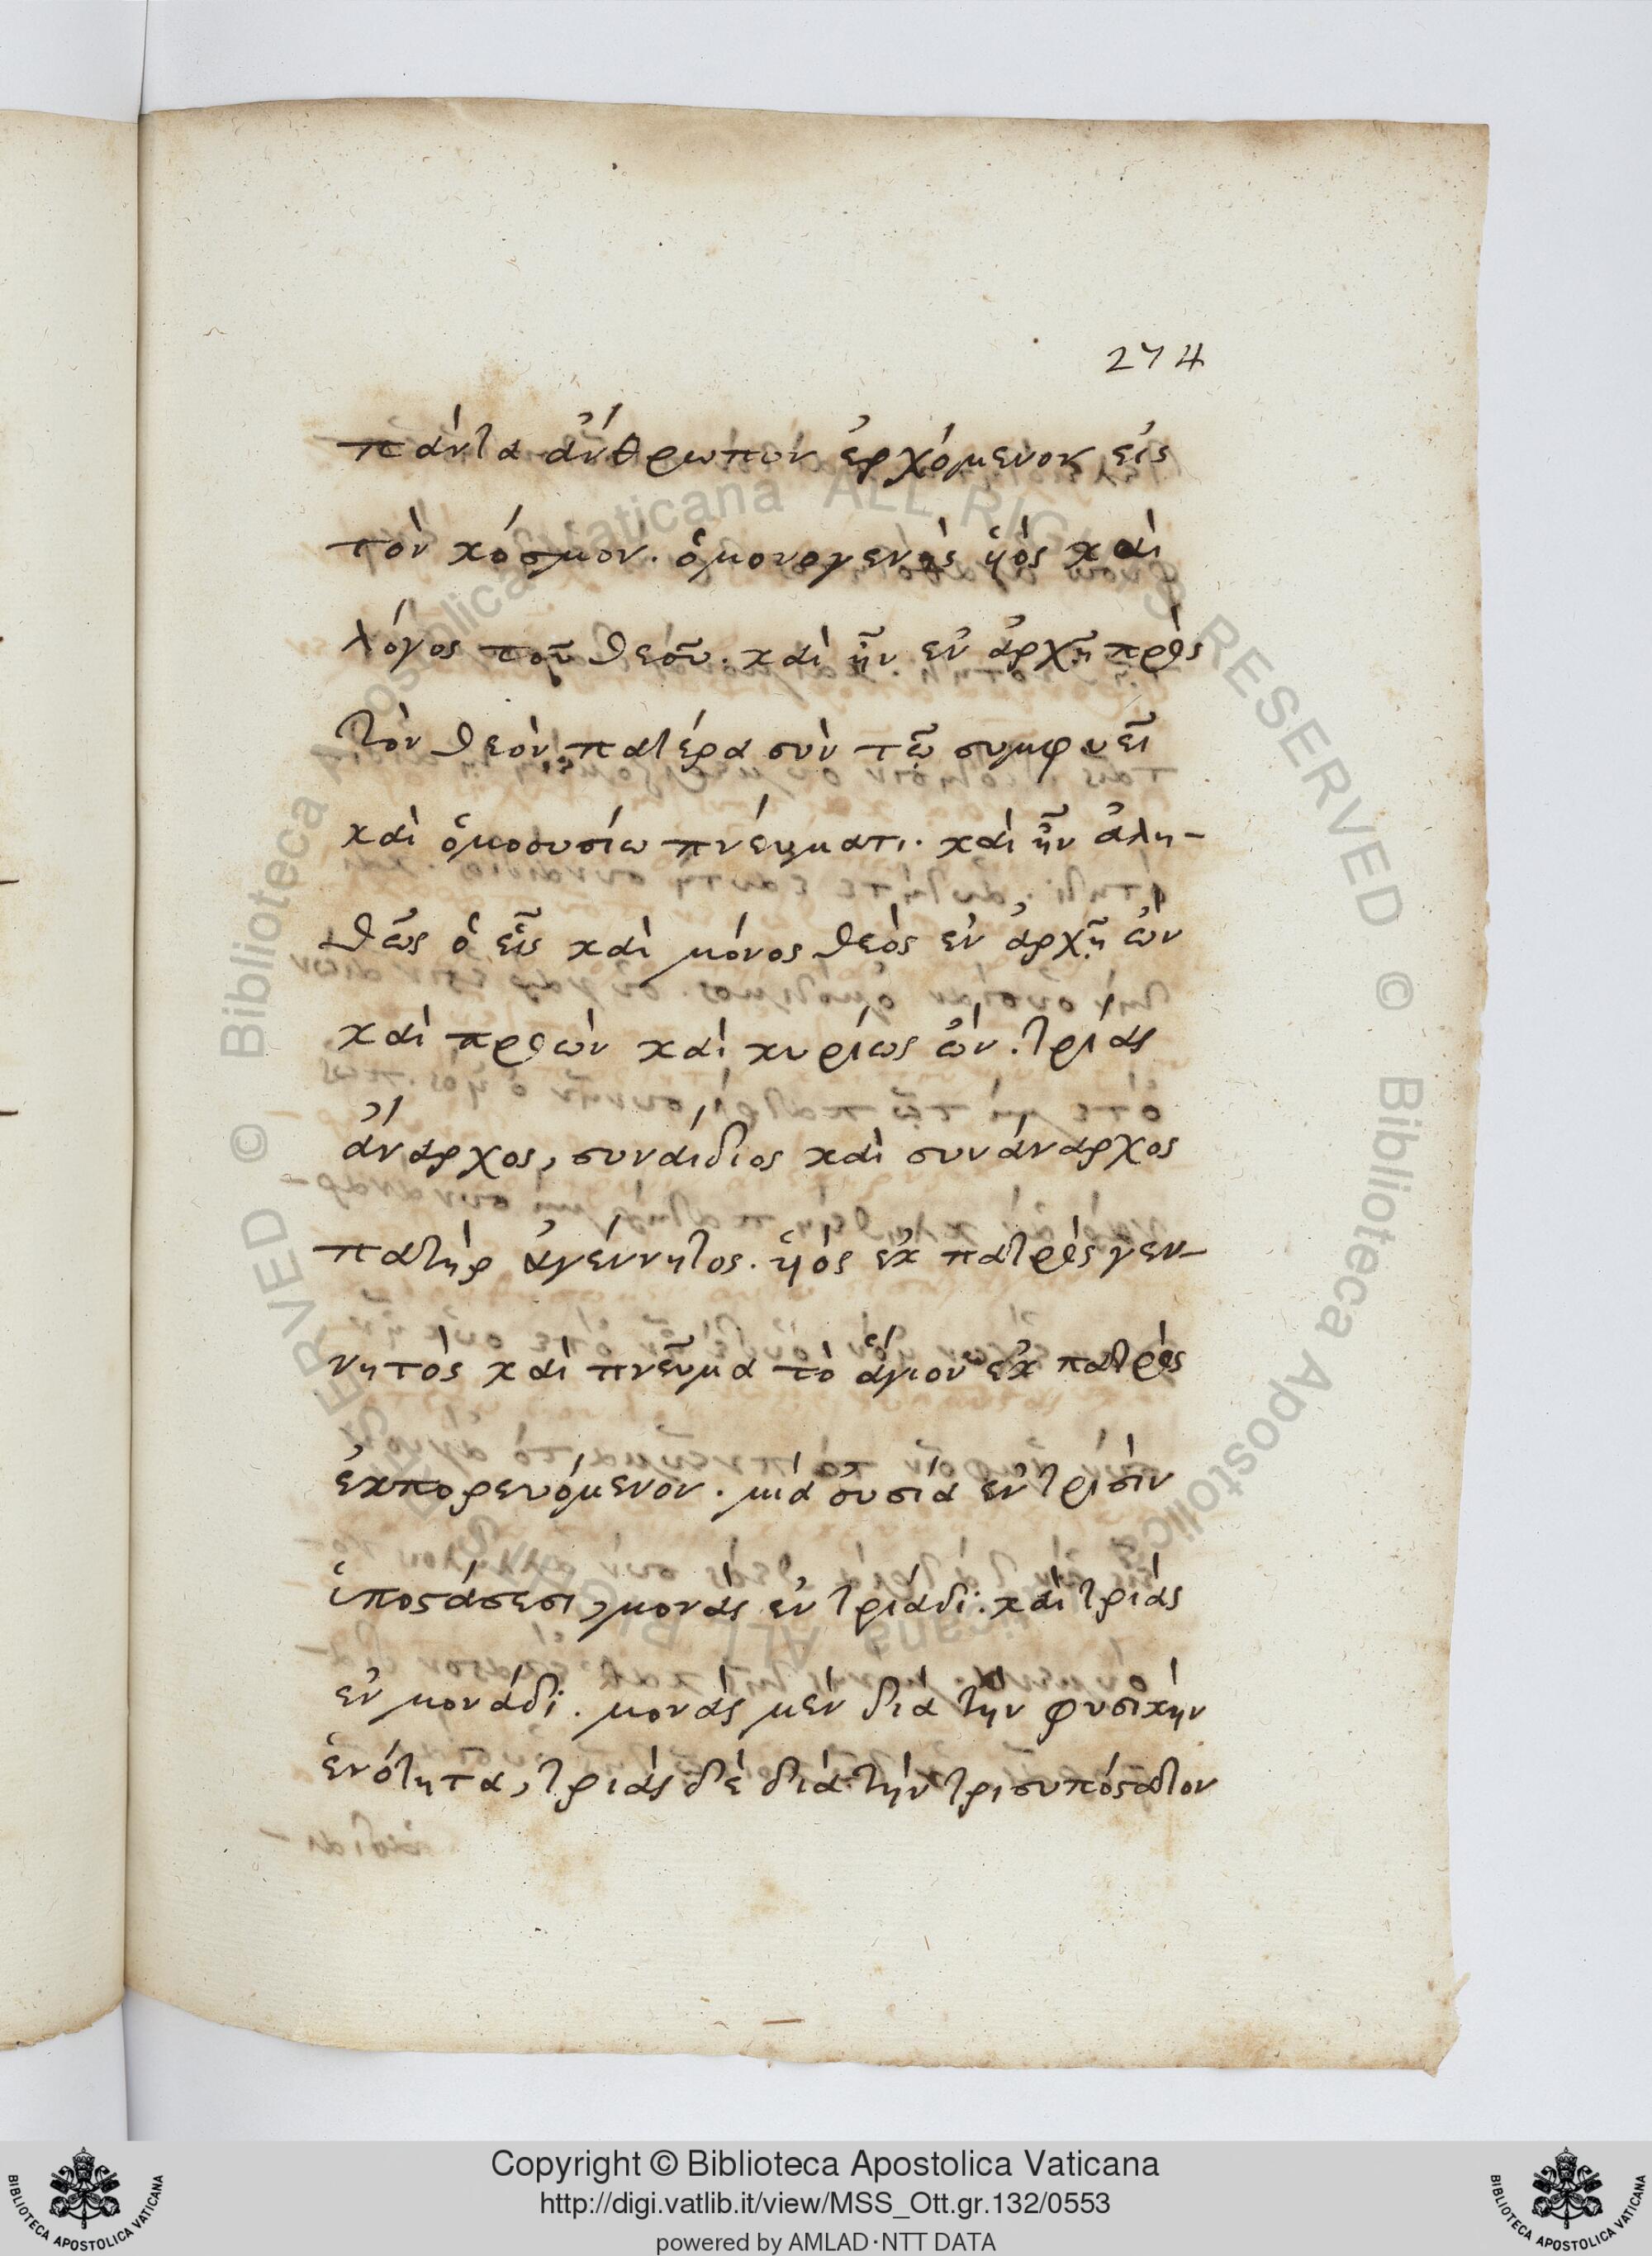 274
πάντα ἄνθρωπον ἐρχόμενον εἰς
τὸν κόσμον. ὁ μονογενὴς ὑὸς καὶ
λόγος τοῦ θεοῦ. καὶ ἦν ἐν ἀρχῇ πρὸς
τὸν θεὸν, πατέρα σὺν τῷ συμφυεῖ
καὶ ὁμοουσίω πνέυματι. καὶ ἦν ἀλη-
θῶς ὁ εἷς καὶ μόνος θεὸς ἐν ἀρχῇ ὢν
καὶ προὼν καὶ κυρίως ὢν. τριὰς
ἄναρχος, συναίδιος καὶ συνάναρχος
πατὴρ ἀγέννητος. ὑὸς ἐκ πατρὸς γεν-
νητὸς καὶ πνεῦμα τὸ ἅγιον ἐκ πατρὸς
ἐκπορευόμενον. μιὰ ὀυσία ἐν τρισὶν
ὑποστάσεσι, μονὰς ἐν τριάδι. καὶ τριὰς
ἐν μονάδι. μονὰς μὲν διὰ τὴν φυσικὴν
ἑνότητα, τριὰς δὲ διὰ τὴν τρισυπόστατον
Copyright © Biblioteca Apostolica Vaticana
http://digi.vatlib.it/view/MSS_Ott.gr.132/0553
powered by AMLAD·NTT DATA